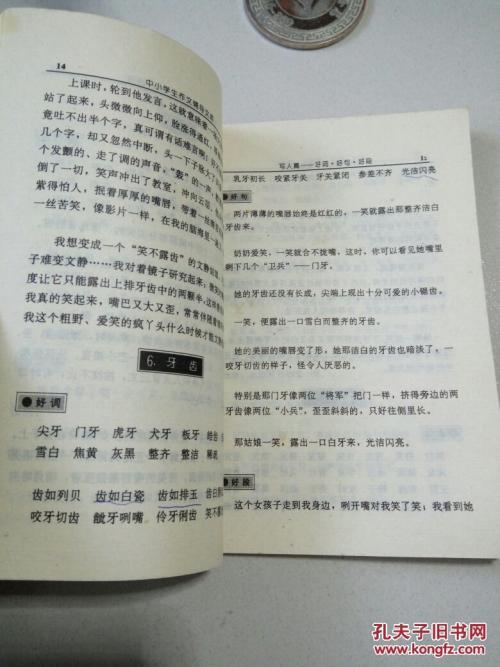 14
中小学生作文辅导之友
上课时，轮到他发言，这就意味着
站了起来，头微微向上仰，脸涨得通红，
竟吐不出半个字，真可谓有话难言啊！好
几个字，却又忽然中断，头一下子胀大了
个发颤的、走了调的声音，“轰”的一声，
倒了一切，笑声冲出了教室，冲向云霄，
紫得怕人，抿着厚厚的嘴唇，带着
一丝苦笑，像影片一样，在我的脑海里
我想变成一个“笑不露齿”的文静姑娘，
子难变文静……我对着镜子研究起来：微笑
度让它只能露出上排牙齿中的两颗半，这样
我真的笑起来，嘴巴又大又歪，常常伴随着
我这个粗野、爱笑的疯丫头什么时候才能文静
6. 牙齿
好调
尖牙 门牙 虎牙 犬牙 板牙
雪白 焦黄 灰黑 整齐 整洁
齿如列贝 齿如白瓷 齿如排玉 齿白
咬牙切齿 龇牙咧嘴 伶牙俐齿 笑不露
写人篇——好词·好句·好段
乳牙初长 咬紧牙关 牙关紧闭 参差不齐 光洁闪亮
好句
两片薄薄的嘴唇始终是红红的，一笑就露出那整齐洁白
牙齿来。
奶奶爱笑，一笑就合不拢嘴，这时，你可以看见她嘴里
剩下几个“卫兵”——门牙。
她的牙齿还没有长成，尖端上现出十分可爱的小锯齿。
一笑，便露出一口雪白而整齐的牙齿。
她的美丽的嘴唇变了形，她那洁白的牙齿也暗淡了，一
咬牙切齿的样子，怪令人厌恶的。
特别是那门牙像两位“将军”把门一样，挤得旁边的两
牙齿像两位“小兵”，歪歪斜斜的，只好往侧里长。
那姑娘一笑，露出一口白牙来，光洁闪亮。
好段
这个女孩子走到我身边，咧开嘴对我笑了笑；我看到她
孔夫子旧书网
www.kongfz.com